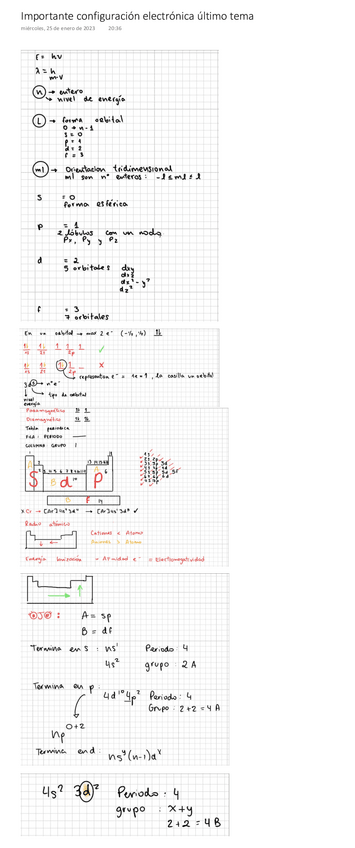 Importante configuración electrónica último tema
miércoles, 25 de enero de 2023 20:36
E = hν
λ = h
m·v
n → entero
→ nivel de energía
L → forma orbital
0 → n-1
s = 0
p = 1
d = 2
f = 3
ml → Orientacion tridimensional
ml son nº enteros: -l ≤ ml ≤ l
s = 0
forma esférica
p = 1
2 lóbulos con un nodo
Px, Py y Pz
d = 2
5 orbitales dxy
dxz
dx² - y²
dz²
f = 3
7 orbitales
En un orbital → max 2 e⁻ (-½, ½)
1s 2s 2p
representan e⁻ = 1e = 1, la casilla un orbital
3d → nº e⁻
tipo de orbital
nivel
energía
Paramagnético
Diamagnético
Tabla periódica
FILA: PERIODO
COLUMNA: GRUPO
S d¹⁰ p
F 14
x Cr → [Ar] 4s² 3d⁴ → [Ar] 4s¹ 3d⁵ ✓
Radio atómico
Cationes < Átomo
Aniones > Átomo
Energía Ionización = Afinidad e⁻ = Electronegatividad
OJO: A = sp
B = df
Termina en s: ns¹ Periodo: 4
4s² grupo: 2 A
Termina en p:
4d¹⁰ 4p² Periodo: 4
Grupo: 2+2 = 4 A
0+2
np
Termina en d: ns^y (n-1)d^x
4s² 3d² Periodo: 4
grupo: x+y
2+2 = 4B